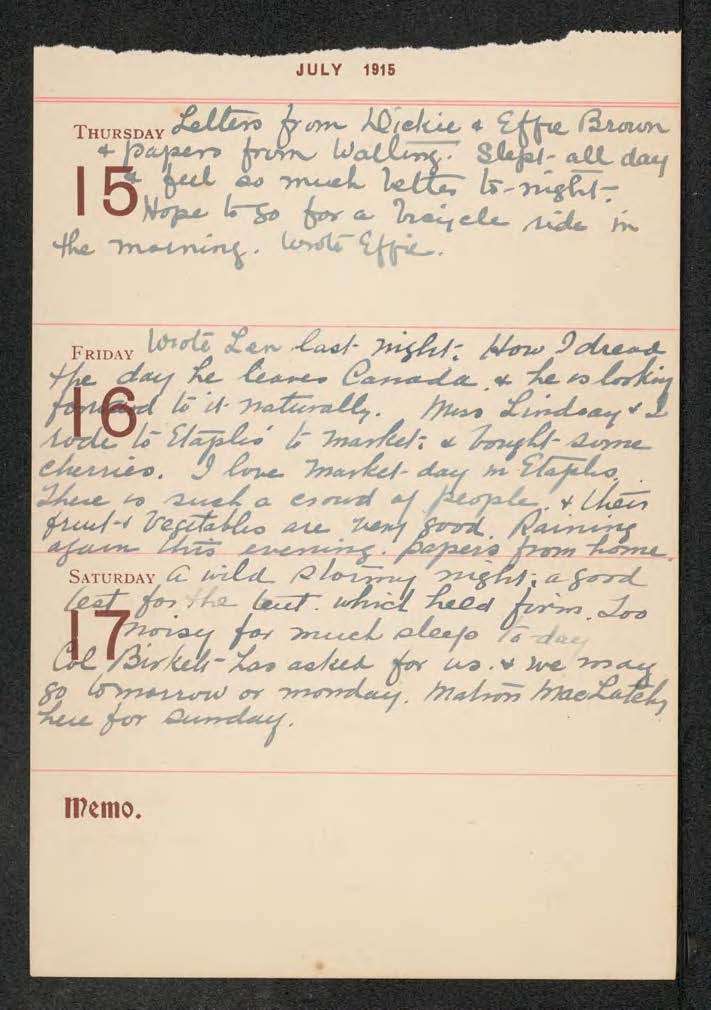 JULY 1915
THURSDAY Letters from Dickie & Effie Brown
& papers from Walling. Slept all day
15 & feel so much better to-night.
Hope to go for a bicycle ride in
the morning. Wrote Effie.
FRIDAY Wrote Len last night. How I dread
the day he leaves Canada. & he is looking
16 forward to it naturally. Miss Lindsay & I
rode to Etaples to market: & bought some
cherries. I love market-day in Etaples.
There is such a crowd of people. & their
fruit & vegetables are very good. Raining
again this evening. papers from home.
SATURDAY A wild stormy night; a good
test for the tent. which held firm. Too
17 noisy for much sleep to-day
Col Birkett has asked for us. & we may
go tomorrow or monday. Matron MacLatchy
here for sunday.
Memo.